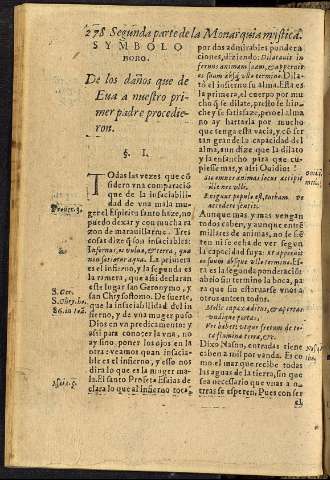 278 Segunda parte de la Monarquia mystica.
SYMBOLO
NONO.
De los daños que de
Eua a nuestro pri-
mer padre procedie-
ron.
§. I.
TOdas las vezes que cõ
sidero vna comparació
que de la insaciabili-
dad de vna mala mu-
ger el Espiritu santo haze, no
puedo dexar y con mucha ra
zon de marauillarme. Tres
cosas dize q̃ son insaciables:
Infernus, os vuluæ, & terra, que
non satiatur aqua. La primera
es el infierno, y la segunda es
la ramera, que assi declaran
este lugar san Geronymo, y
san Chrysostomo. De suerte,
que la insaciabilidad del in
fierno, y de vna muger puso
Dios en vn predicamento: y
assi para conocer la vna, no
ay sino poner los ojos en la
otra: veamos quan insacia-
ble es el infierno, y esso nos
dira lo que es la muger ma-
la. El santo Profeta Esaias de
clara lo que al infierno toca,
Prouer. 3.
S. Ger.
S. Chry. ho.
Isaiæ. 5.
por dos admirables pondera
ciones, diziendo: Dilatauit in
fernus animam suam, & aperuit
os suum absq; vllo termino. Dila-
tò el infierno su alma. Esta es
la primera, el cuerpo por mu
cho q̃ se dilate, presto se hin-
che y se satisfaze, pero el al-
ma no ay hartarla por mucho
que tenga esta vacia, y cõ ser
tan grande la capacidad del
alma, aun dize que la dilato
y la ensancho para que cu-
piesse mas, y assi Ouidio:
ille omnes animas locus accipit
ille nec vlli.
Exiguus populo est, turbam ve
accedere sentit.
Aunque mas y mas vengan
todos caben, y aunque entrẽ
millares de animas, no se siẽ
ten ni se echa de ver segun
la capacidad suya: Et aperuit
os suum absque vllo termino. Es-
ta es la segunda ponderacion
abrio sin termino la boca, pa
ra que sin estoruarse vnos a
otros entren todos.
Mille capax aditus, & apertas
vndique portas,
Vrbs habet: vtque fretum de to-
ta flumina terra, &c.
Dixo Nasón, entradas tiene
caben a mil por vanda. Es co
mo el mar que recibe todas
las aguas de la tierra, sin que
sea necessario que vnas a o-
tras se esperen. Pues con ser
el